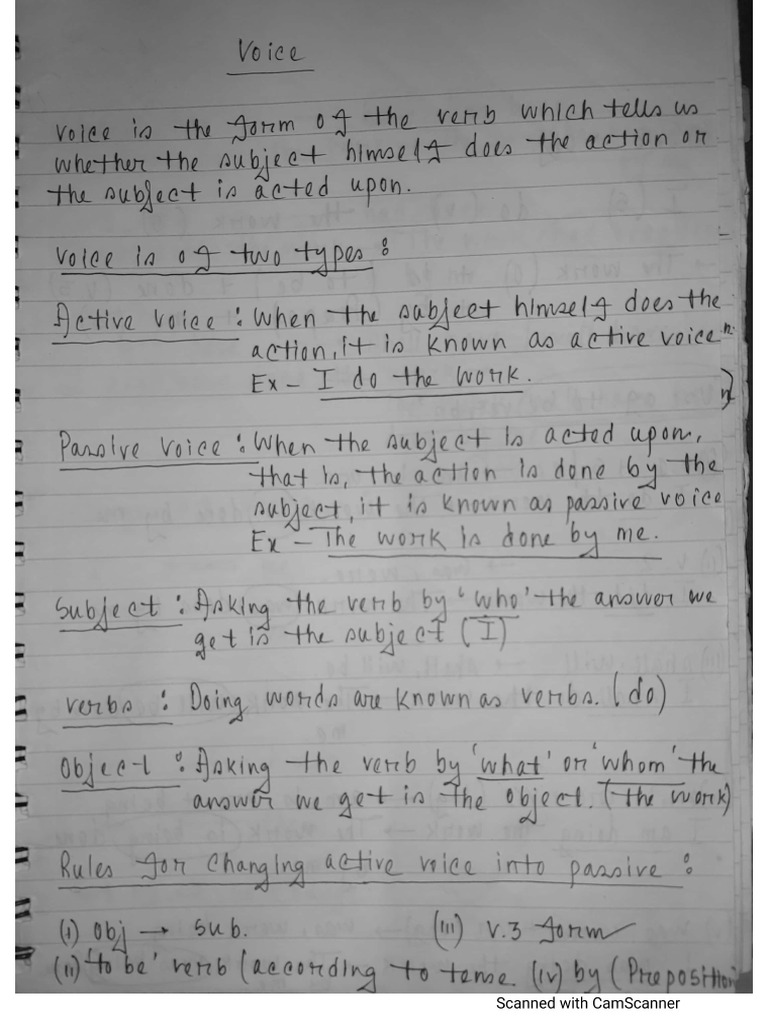 Voice
Voice is the form of the verb which tells us
whether the subject himself does the action or
the subject is acted upon.
Voice is of two types:
Active Voice: When the subject himself does the
action, it is known as active voice
Ex - I do the work.
Passive Voice: When the subject is acted upon,
that is, the action is done by the
subject, it is known as passive voice
Ex - The work is done by me.
Subject: Asking the verb by 'who' the answer we
get is the subject (I)
Verbs: Doing words are known as verbs. (do)
Object: Asking the verb by 'what' or 'whom' the
answer we get is the object. (the work)
Rules for changing active voice into passive:
(i) Obj → Sub. (iii) v.3 form
(ii) 'to be' verb (according to tense. (iv) by (Preposition
Scanned with CamScanner